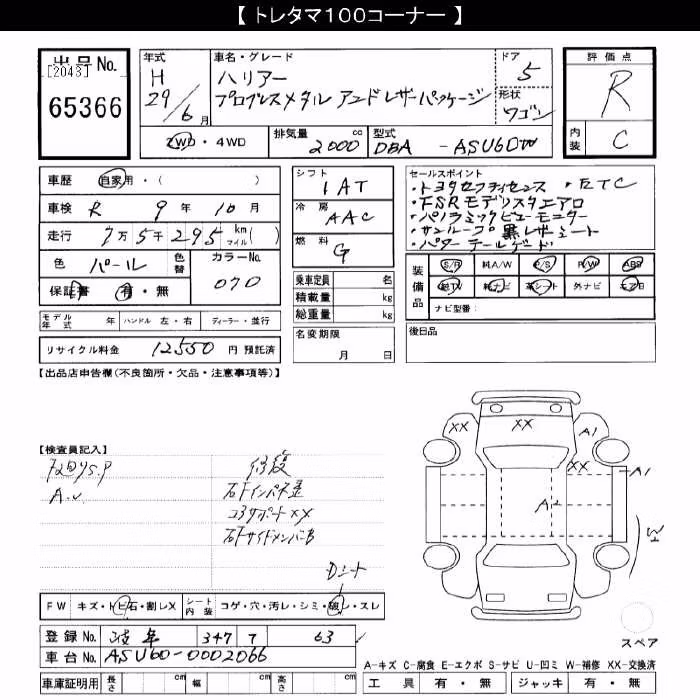 【 トレタマ100コーナー 】
出品No.
[2043]
65366
年式
H
29/6月
車名・グレード
ハリアー
プログレスメタル アンド レザーパッケージ
ドア
5
形状
ワゴン
評価点
R
内装
C
2WD・4WD
排気量
2000 cc
型式
DBA - ASU60W
車歴 自家用・( )
車検 R 9年 10月
走行 7万5千295 km マイル( )
色 パール 色替
カラーNo.
070
保証書 有・無
モデル年式 年 ハンドル 左・右 ディーラー・並行
リサイクル料金 12550 円 預託済
シフト
1AT
冷房
AAC
燃料
G
乗車定員 名
積載量 kg
総重量 kg
名変期限
月 日
セールスポイント
・トヨタセフティセンス ・ETC
・FSRモデリスタエアロ
・パノラミックビューモニター
・サンルーフ 黒レザーシート
・パワーテールゲート
装備品
S/R 純A/W P/S P/W ABS
純TV 純ナビ 革シート 外ナビ エアB
ナビ型番:
後日品
【出品店申告欄(不良箇所・欠品・注意事項等)】
【検査員記入】
A.U.
修復
右Fインパネ歪
コアサポートXX
右FサイドメンバーB
Dシート
XX
XX
A1
XX
A1
A2
W
FW キズ・トビ石・割レX
シート内装 コゲ・穴・汚レ・シミ・破レ・スレ
登録No. 岐阜 347 7 63
車台No. ASU60-0002066
車庫証明用 長さ cm 幅 cm 高さ cm
スペア
A-キズ C-腐食 E-エクボ S-サビ U-凹ミ W-補修 XX-交換済
工具 有・無 ジャッキ 有・無